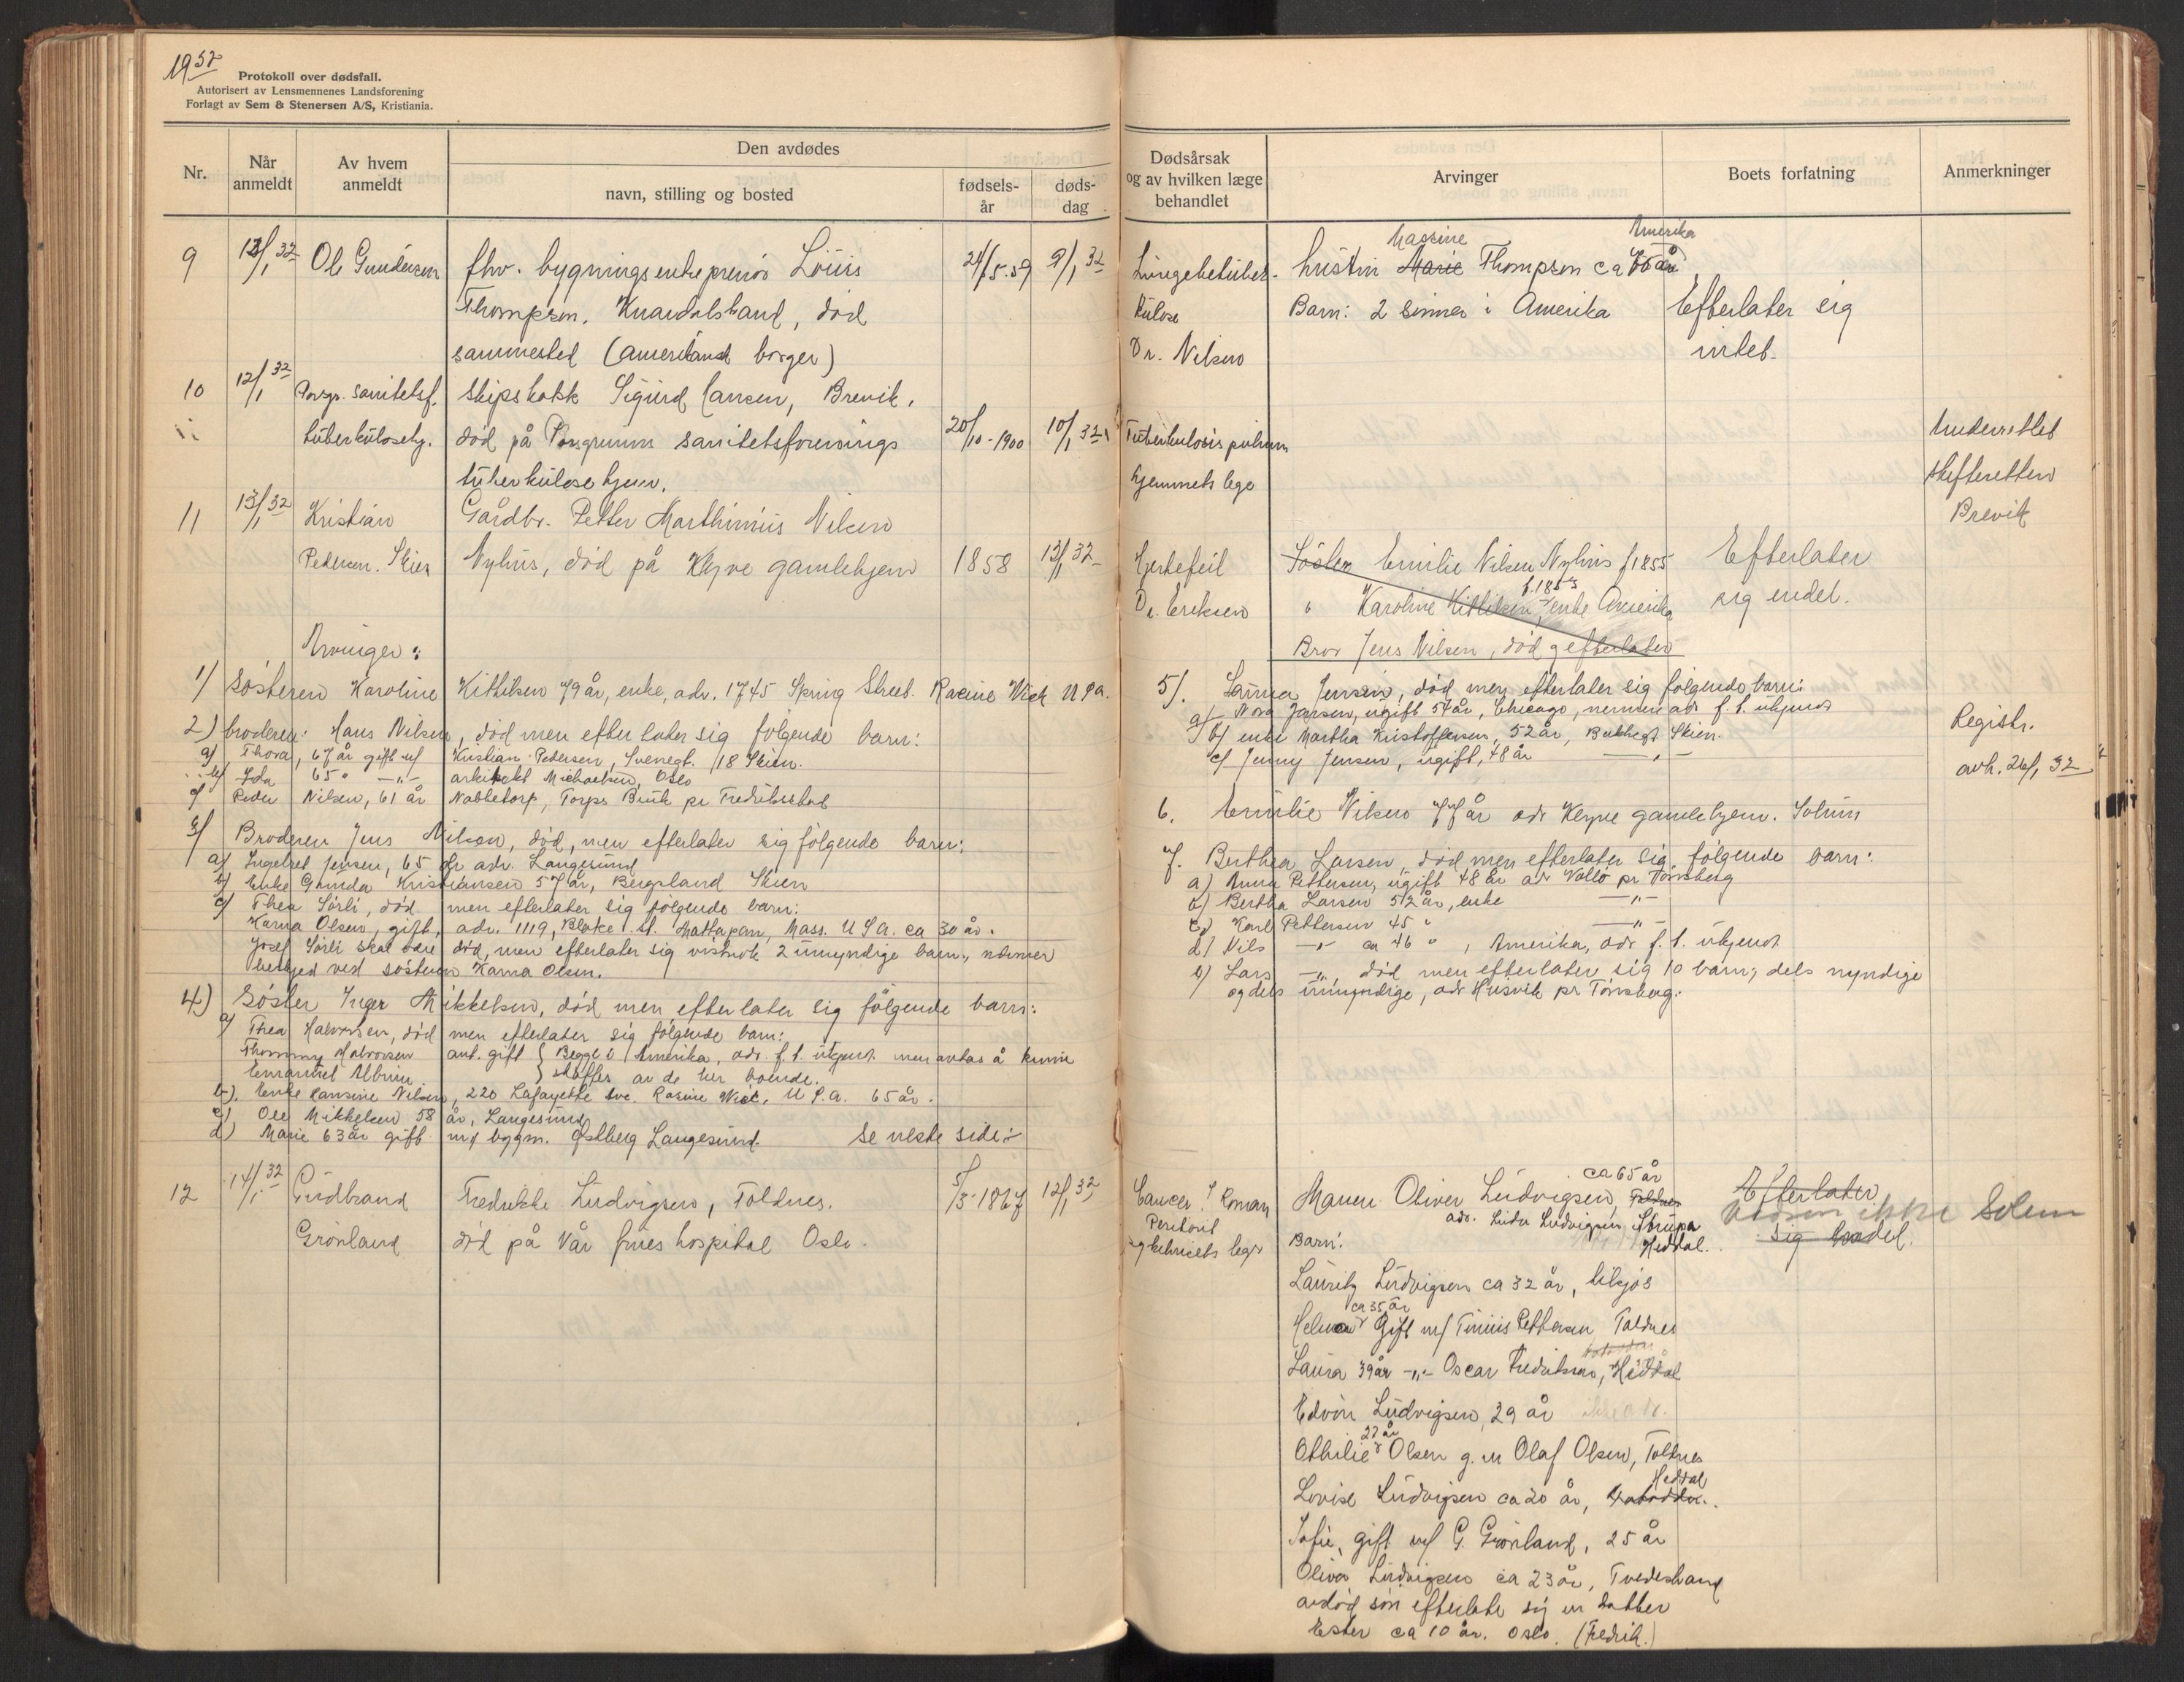 1932
Protokoll over dødsfall.
Autorisert av Lensmennenes Landsforening
Forlagt av Sem & Stenersen A/S, Kristiania.
Nr.
Når anmeldt
Av hvem anmeldt
Den avdødes
navn, stilling og bosted
fødsels-år
døds-dag
Dødsårsak og av hvilken læge behandlet
Arvinger
Boets forfatning
Anmerkninger
9 12/1 32 Ole Gundersen fhv. bygningsentreprenør Louis 21/5-59 9/1 32
Thompson, Knardalstrand, død
sammested (amerikansk borger)
Lungetuber-
kulose
Dr. Nilsen
Hustru Marie Thompson ca år
Massine
Amerika
Barn: 2 sønner i Amerika
Efterlater sig
intet.
10 12/1 32 Porsgr. sanitetsf. Skipskokk Sigurd Hansen, Brevik,
tuberkulosehj. død på Porsgrunns sanitetsforenings 20/10-1900 10/1 32
tuberkulosehjem.
Tuberkulosis pulmum
hjemmets lege
Underrettet
skifteretten
Brevik
11 13/1 32 Kristian Gårdbr. Petter Marthinius Nilsen
Pedersen. Skien Nyhus, død på Klyve gamlehjem 1858 13/1 32
Hjertefeil
Dr. Eriksen
Søster Emilie Nilsen Nyhus f 1855
" Karoline Kittilsen, enke Amerika
f. 1853
Bror Jens Nilsen, død, efterlater
Efterlater
sig endel.
Arvinger:
1) Søsteren Karoline Kittilsen 79 år, enke, adr. 1745 Spring Street. Racine Wick U S a.
2) broderen: Hans Nilsen, død men efterlater sig følgende barn:
a) Thora, 67 år gift m/ Kristian Pedersen, Svenegt. 18 Skien.
b) Ida 65 " -"- arkitekt Michaelsen, Oslo
c) Peder Nilsen, 61 år Nabbetorp, Torps Bruk pr Fredrikstad
3) Broderen Jens Nilsen, død, men efterlater sig følgende barn:
a) Ingebret Jensen, 65 år adr. Langesund
b) Enke Gunda Kristiansen 57 år, Bergsland Skien
c) Thea Sørli, død men efterlater sig følgende barn:
Karna Olsen, gift, adr. 1119, Blake st. Mattapan, Mass. U S a. ca 30 år.
Josef Sørli skal være død, men efterlater sig vistnok 2 umyndige barn, nærmer
beskjed ved søsteren Karna Olsen.
4) Søster Inger Mikkelsen, død men efterlater sig følgende barn:
a) Thea Halvorsen, død men efterlater sig følgende barn:
Thommy Halvorsen ant. gift } Begge i Amerika, adr. f. t. ukjent men antas å kunne
Emanuel Albin } skaffes av de her boende.
b). Enke Hansine Nilsen, 220 Lafayette ave. Racine Wick, U S. a. 65 år.
c) Ole Mikkelsen 58 år, Langesund
d) Marie 63 år gift med bygm. Østberg Langesund. Se neste side:-
5). Laura Jensen, død men efterlater sig følgende barn:
a) Nora Jensen, ugift 54 år, Chicago, nermere adr f. t. ukjent
b) enke Martha Kristoffersen, 52 år, Skien.
c) Jenny Jensen, ugift, 48 år -"-
Registr.
avh. 26/1 32
6. Emilie Nilsen 77 år adr Klyve gamlehjem. Solum
7. Berthea Larsen, død men efterlater sig følgende barn:
a) Anna Pettersen, ugift 48 år adr Vallø pr Tønsberg
b) Bertha Larsen 52 år, enke -"-
c) Karl Pettersen 45 " -"-
d) Nils -"- ca 46 ", Amerika, adr f. t. ukjent
e) Lars -"-, død men efterlater sig 10 barn, dels myndige
og dels umyndige, adr Husvik pr Tønsberg.
12 14/1 32 Gudbrand Fredrikke Ludvigsen, Toldnes. 5/3-1867 12/1 32
Grønland død på Vår frues hospital Oslo.
Cancer
Peritonit
sykehusets lege
Mannen Oliver Ludvigsen, Toldnes
ca 65 år
adr. Ludvigsen Strupa
Heddal.
Efterlater
sig endel.
ikke
Barn:
Lauritz Ludvigsen ca 32 år,
Helma Gift m/ Tinius Pettersen Toldnes
ca 35 år
Laura 39 år -"- Oscar Fredriksen, Heddal
Edvin Ludvigsen, 29 år
Othilie Olsen g. m Olaf Olsen, Toldnes
27 år
Lovise Ludvigsen ca 20 år, Notodden.
Heddal
Sofie, gift m/ G. Grønland, 25 år
Oliver Ludvigsen ca 23 år, Tvedestrand
avdød søn efterlate sig en datter
Ester ca 10 år. Oslo. (Fredrik.)